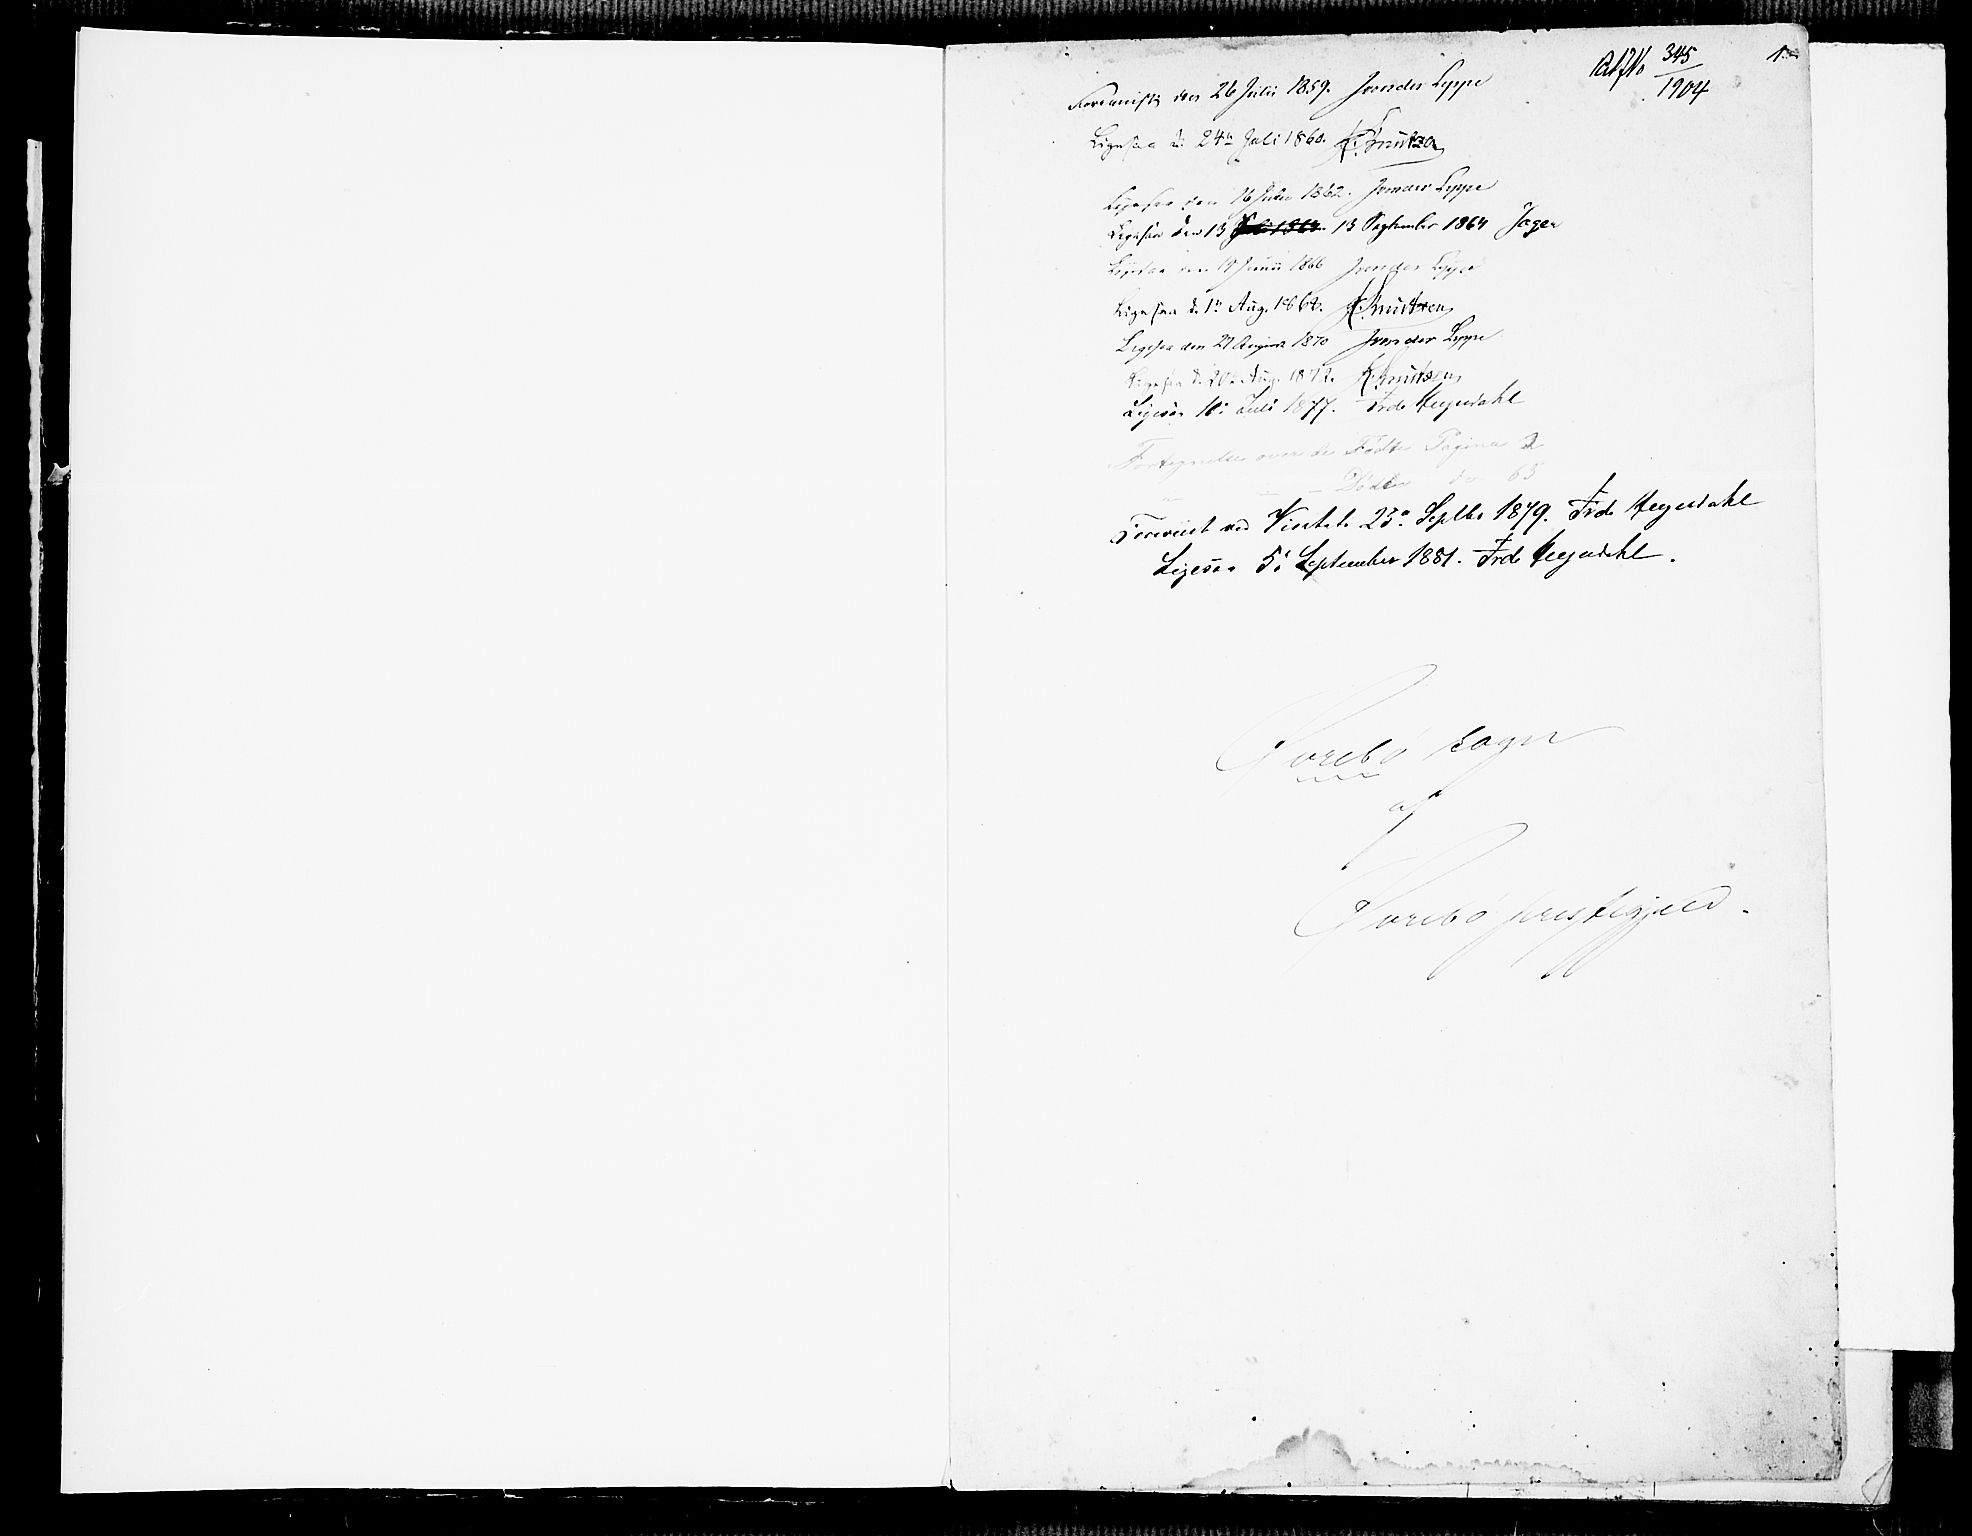 345
1904
1
Foreviist den 26 Julii 1859. Lyppe
Ligesaa d. 24de Juli 1860. Knutzen
Ligesaa den 16 1862. Lyppe
Ligesaa den 13 13 September 1864 Jager
Ligesaa den 19 Junii 1866 Lyppe
Ligesaa d. 1ste Aug. 1868. Knutzen
Ligesaa den 27 August 1870 Lyppe
Ligesaa d. 20de Aug. 1872. Knutzen
Ligesaa 10de Juli 1877. Frdr Heyerdahl
Fortegnelse over de Fødte Pagina 2
" - - Døde do 63
Foreviist ved Visitats 23de Septbr 1879. Frdr Heyerdahl
Ligesaa 5te September 1881. Frdr Heyerdahl.
sogn
af
præstegjeld.